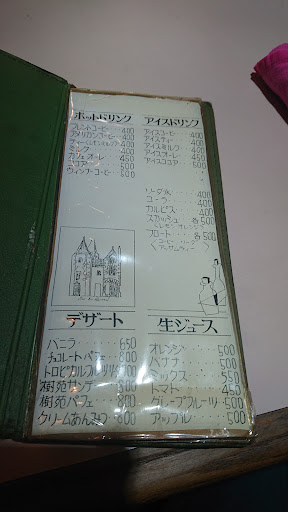 ホットドリンク
ブレンドコーヒー 400
アメリカンコーヒー 400
ティー(レモン・ミルク) 400
ミルク 400
カフェオーレ 450
ココア 500
ウィンナーコーヒー 500
アイスドリンク
アイスコーヒー 400
アイスティー 400
アイスミルク 400
アイスオーレ 450
アイスココア 500
ソーダ水 400
コーラ 400
カルピス 400
スカッシュ 各500
(レモン オレンジ)
フロート 各500
デザート
バニラ 650
チョコレートパフェ 800
トロピカルフルーツサンデー 700
樹苑サンデー 800
樹苑パフェ 800
クリームあんみつ 800
生ジュース
オレンジ 500
バナナ 500
ミックス 500
トマト 450
グレープフルーツ 500
アップル 500